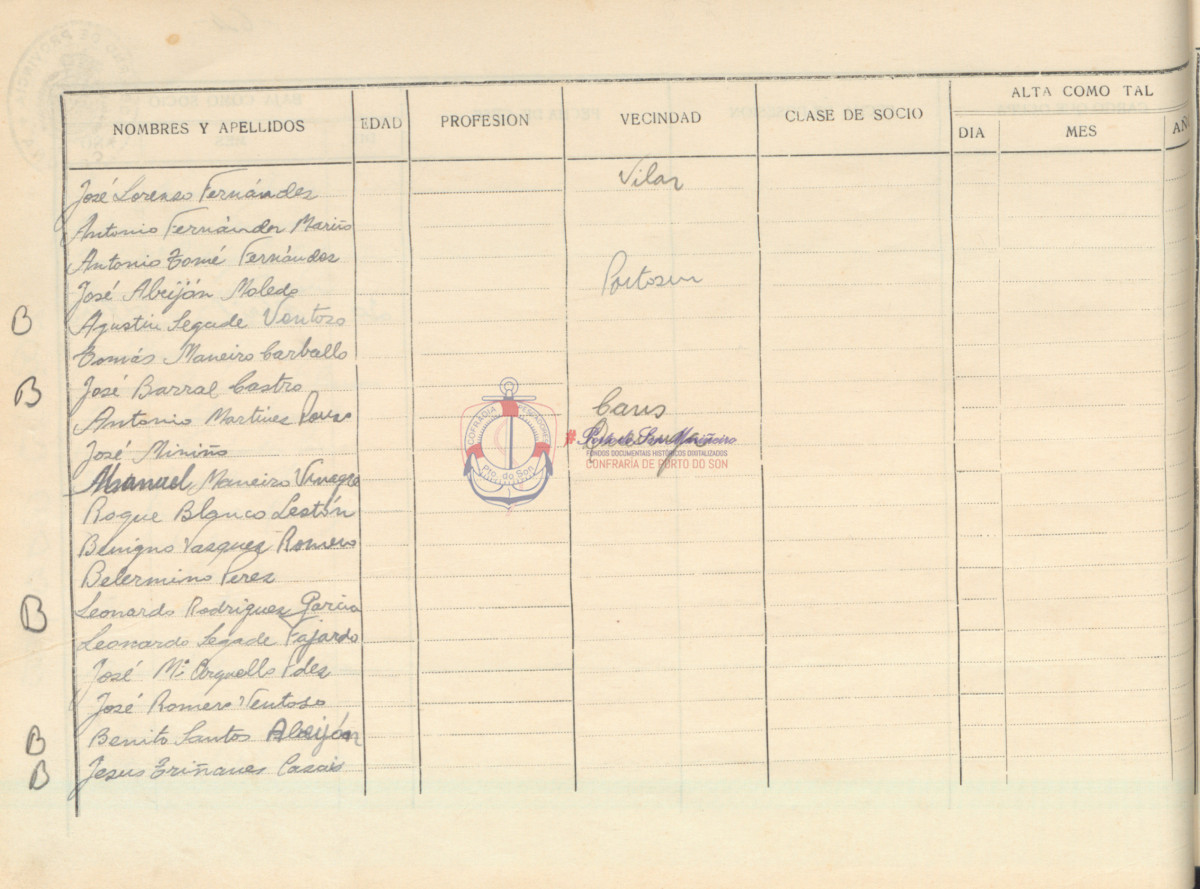 ALTA COMO TAL
NOMBRES Y APELLIDOS EDAD PROFESION VECINDAD CLASE DE SOCIO DIA MES AÑ
José Lorenso Fernándes Vilar
Antonio Fernándes Mariño
Antonio Tomé Fernándes
José Abeiján Moledo Portosin
B Agustin Segade Ventoso
Tomás Maneiro Carballo
B José Barral Castro
Antonio Martines Caus
José Miniño
Manuel Maneiro Vinagre
Roque Blanco Lestón
Benigno Vasques Romero
Belermino Peres
B Leonardo Rodrigues Garcia
Leonardo Segade Fajardo
José Mª Arguello Fdes
José Romero Ventoso
B Benito Santos Abeiján
B Jesus Triñanes Casais
COFRADIA PESCADORES
Pto. do Son
FONDOS DOCUMENTAIS HISTÓRICOS DIXITALIZADOS
CONFRARIA DE PORTO DO SON